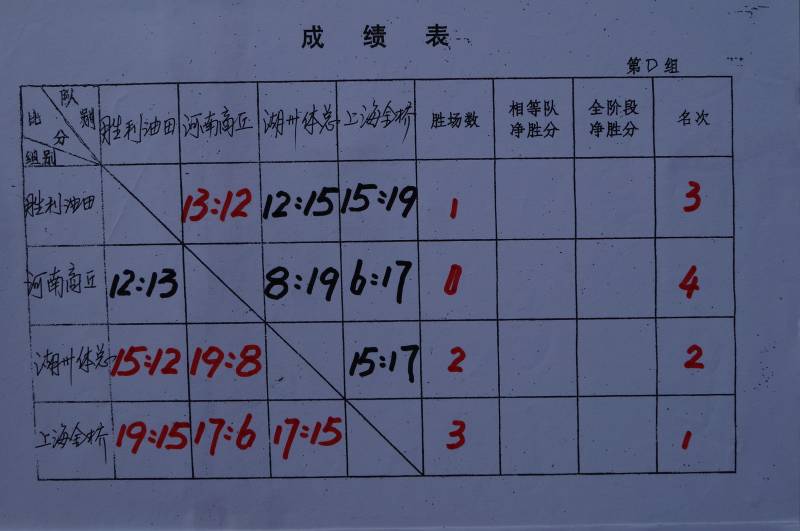 成绩表
第D组
队别 比分 组别 胜利油田 河南商丘 湖州体总 上海金桥 胜场数 相等队净胜分 全阶段净胜分 名次
胜利油田 13:12 12:15 15:19 1 3
河南商丘 12:13 8:19 6:17 0 4
湖州体总 15:12 19:8 15:17 2 2
上海金桥 19:15 17:6 17:15 3 1